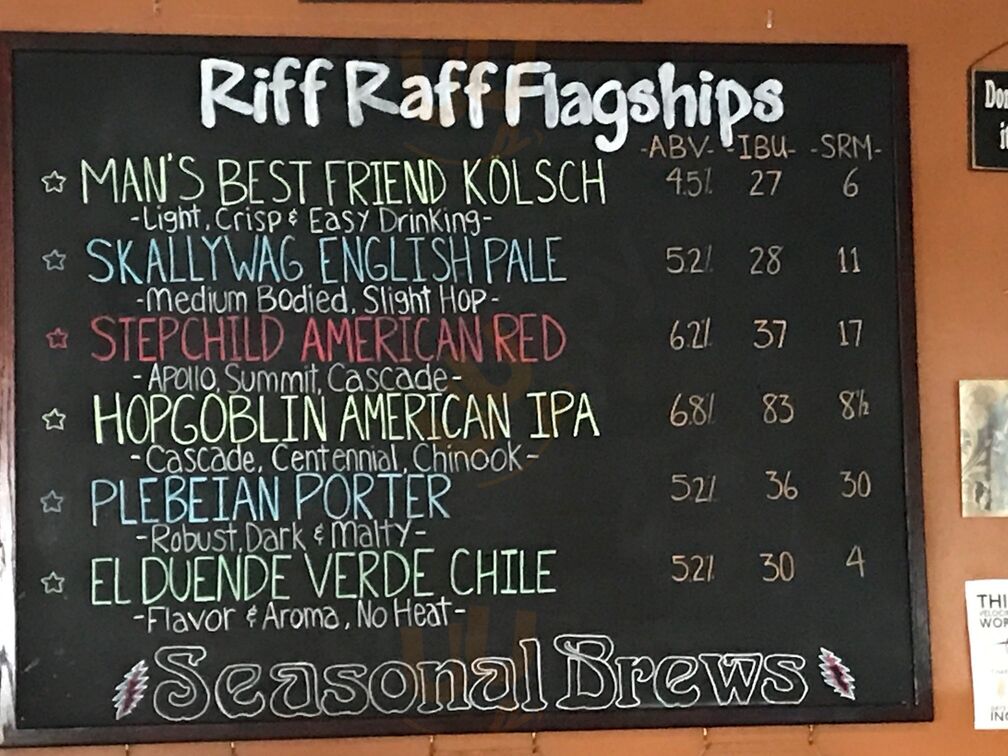 Riff Raff Flagships
-ABV- -IBU- -SRM-
MAN'S BEST FRIEND KÖLSCH 4.5% 27 6
-Light, Crisp & Easy Drinking-
SKALLYWAG ENGLISH PALE 5.2% 28 11
-Medium Bodied, Slight Hop-
STEPCHILD AMERICAN RED 6.2% 37 17
-Apollo, Summit, Cascade-
HOPGOBLIN AMERICAN IPA 6.8% 83 8½
-Cascade, Centennial, Chinook-
PLEBEIAN PORTER 5.2% 36 30
-Robust, Dark & Malty-
EL DUENDE VERDE CHILE 5.2% 30 4
-Flavor & Aroma, No Heat-
Seasonal Brews